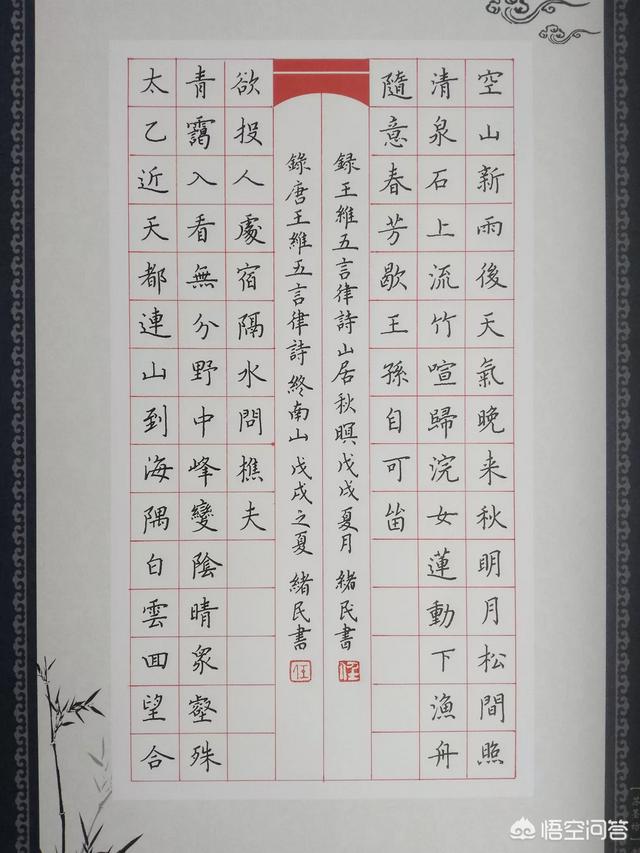 空山新雨後天氣晚来秋明月松間照
清泉石上流竹喧歸浣女蓮動下漁舟
隨意春芳歇王孫自可畄
録王維五言律詩山居秋暝戊戌夏月 緒民書
任
太乙近天都連山到海隅白雲囬望合
青靄入看無分野中峰變陰晴衆壑殊
欲投人處宿隔水問樵夫
錄唐王維五言律詩終南山 戊戌之夏 緒民書
任
悟空问答